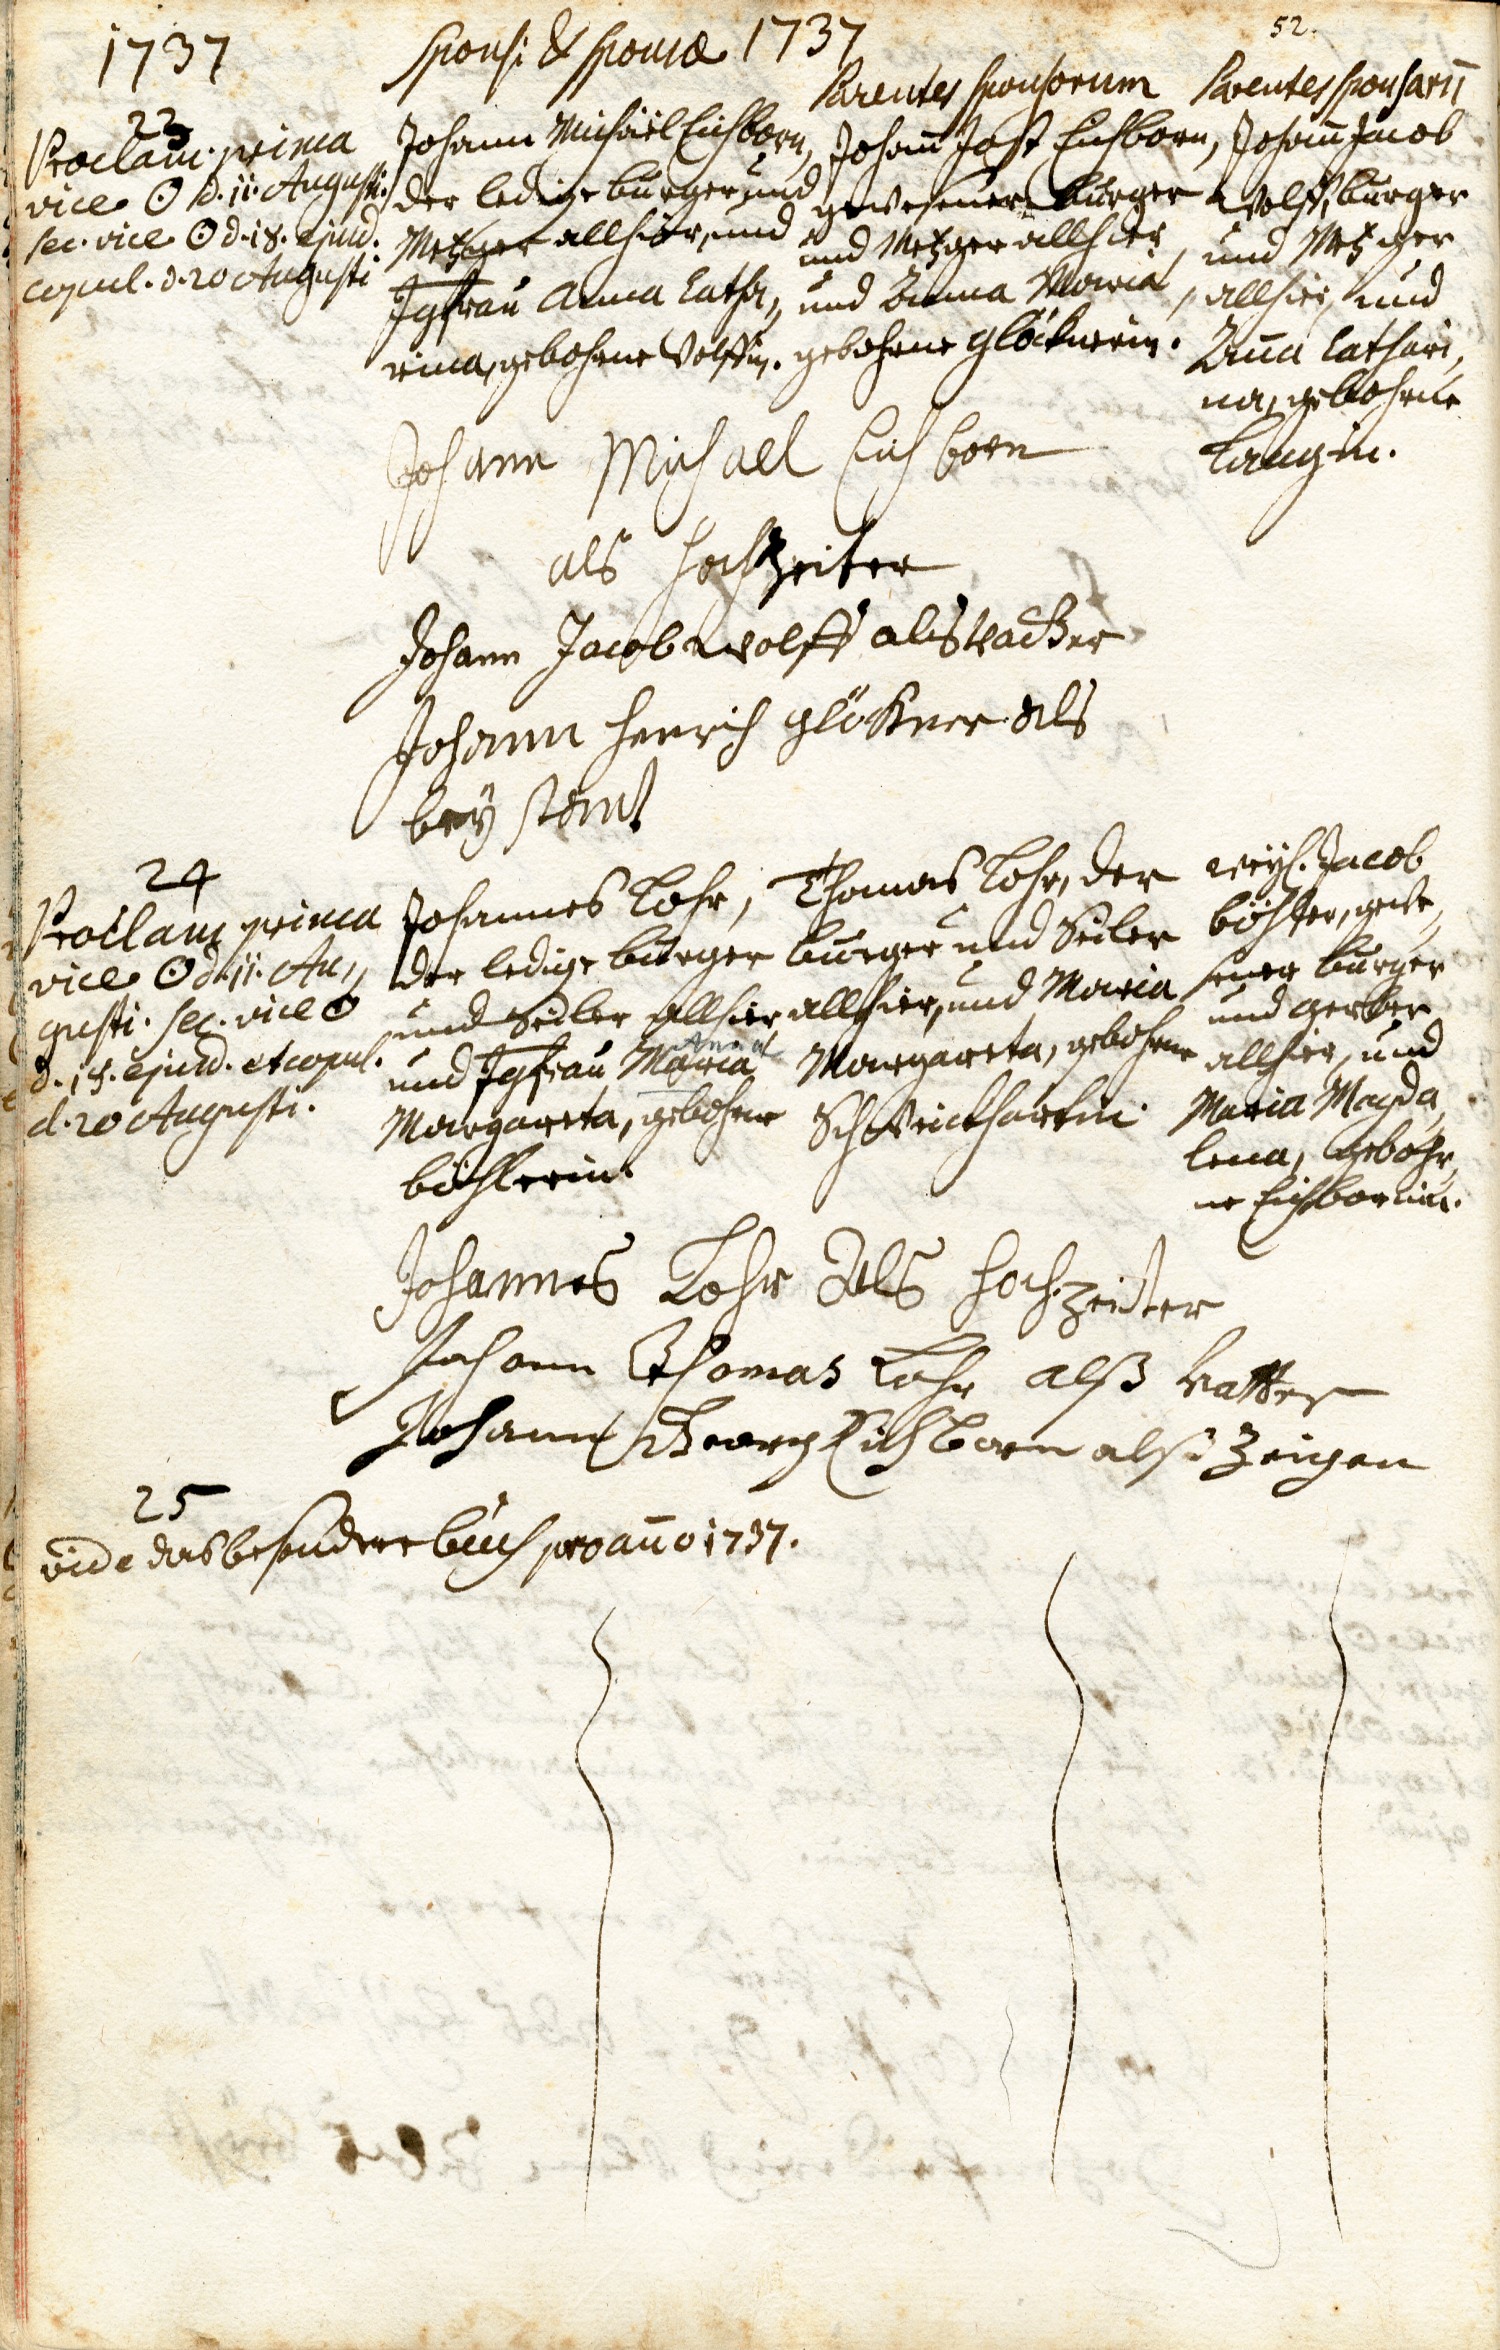 52.
1737
Sponsi & Sponsæ 1737
Parentes Sponsorum
Parentes Sponsarū
23
Proclam. prima
vice ☉ d. 11. Augusti.
sec. vice ☉ d. 18. ejusd.
copul. d. 20 Augusti
Johann Michael Eichborn,
der ledige burger und
Metzger allhier, und
Jgfrau Anna Catha„
rina, gebohrne Wolffin.
Joham̄ Jost Eichborn,
gewesener burger
und Metzger allhier,
und Anna Maria,
gebohrne Glöcknerin.
Joham̄ Jacob
Wolff, burger
und Metzger
allhier, und
Am̄a Cathari„
na, gebohrne
Langin.
Johann Michael Eichborn
als Hochzeiter
Johann Jacob Wolff als Vatter
Johann Henrich Glökner als
bey stant
24
Proclam prima
vice ☉ d. 11. Au„
gusti. sec. vice ☉
d. 18. ejusd. et copul.
d. 20 Augusti.
Johannes Lohr,
der ledige burger
und Seiler allhier
Anna
und Jgfrau Maria
Margareta, gebohrne
böhlerin.
Thomas Lohr, der
burger und Seiler
allhier, und Maria
Margareta, gebohrne
Schweickhartin.
weyl. Jacob
böhler, gewe„
sener burger
und gerber
allhier, und
Maria Magda„
lena, gebohr„
ne Eichbornin.
Johannes Lohr Als Hochzeiter
Johann Thomas Lohr alß Vatter
Johann Georg Eichborn alß Zeigen
25
vide das besondere buch pro año 1737.